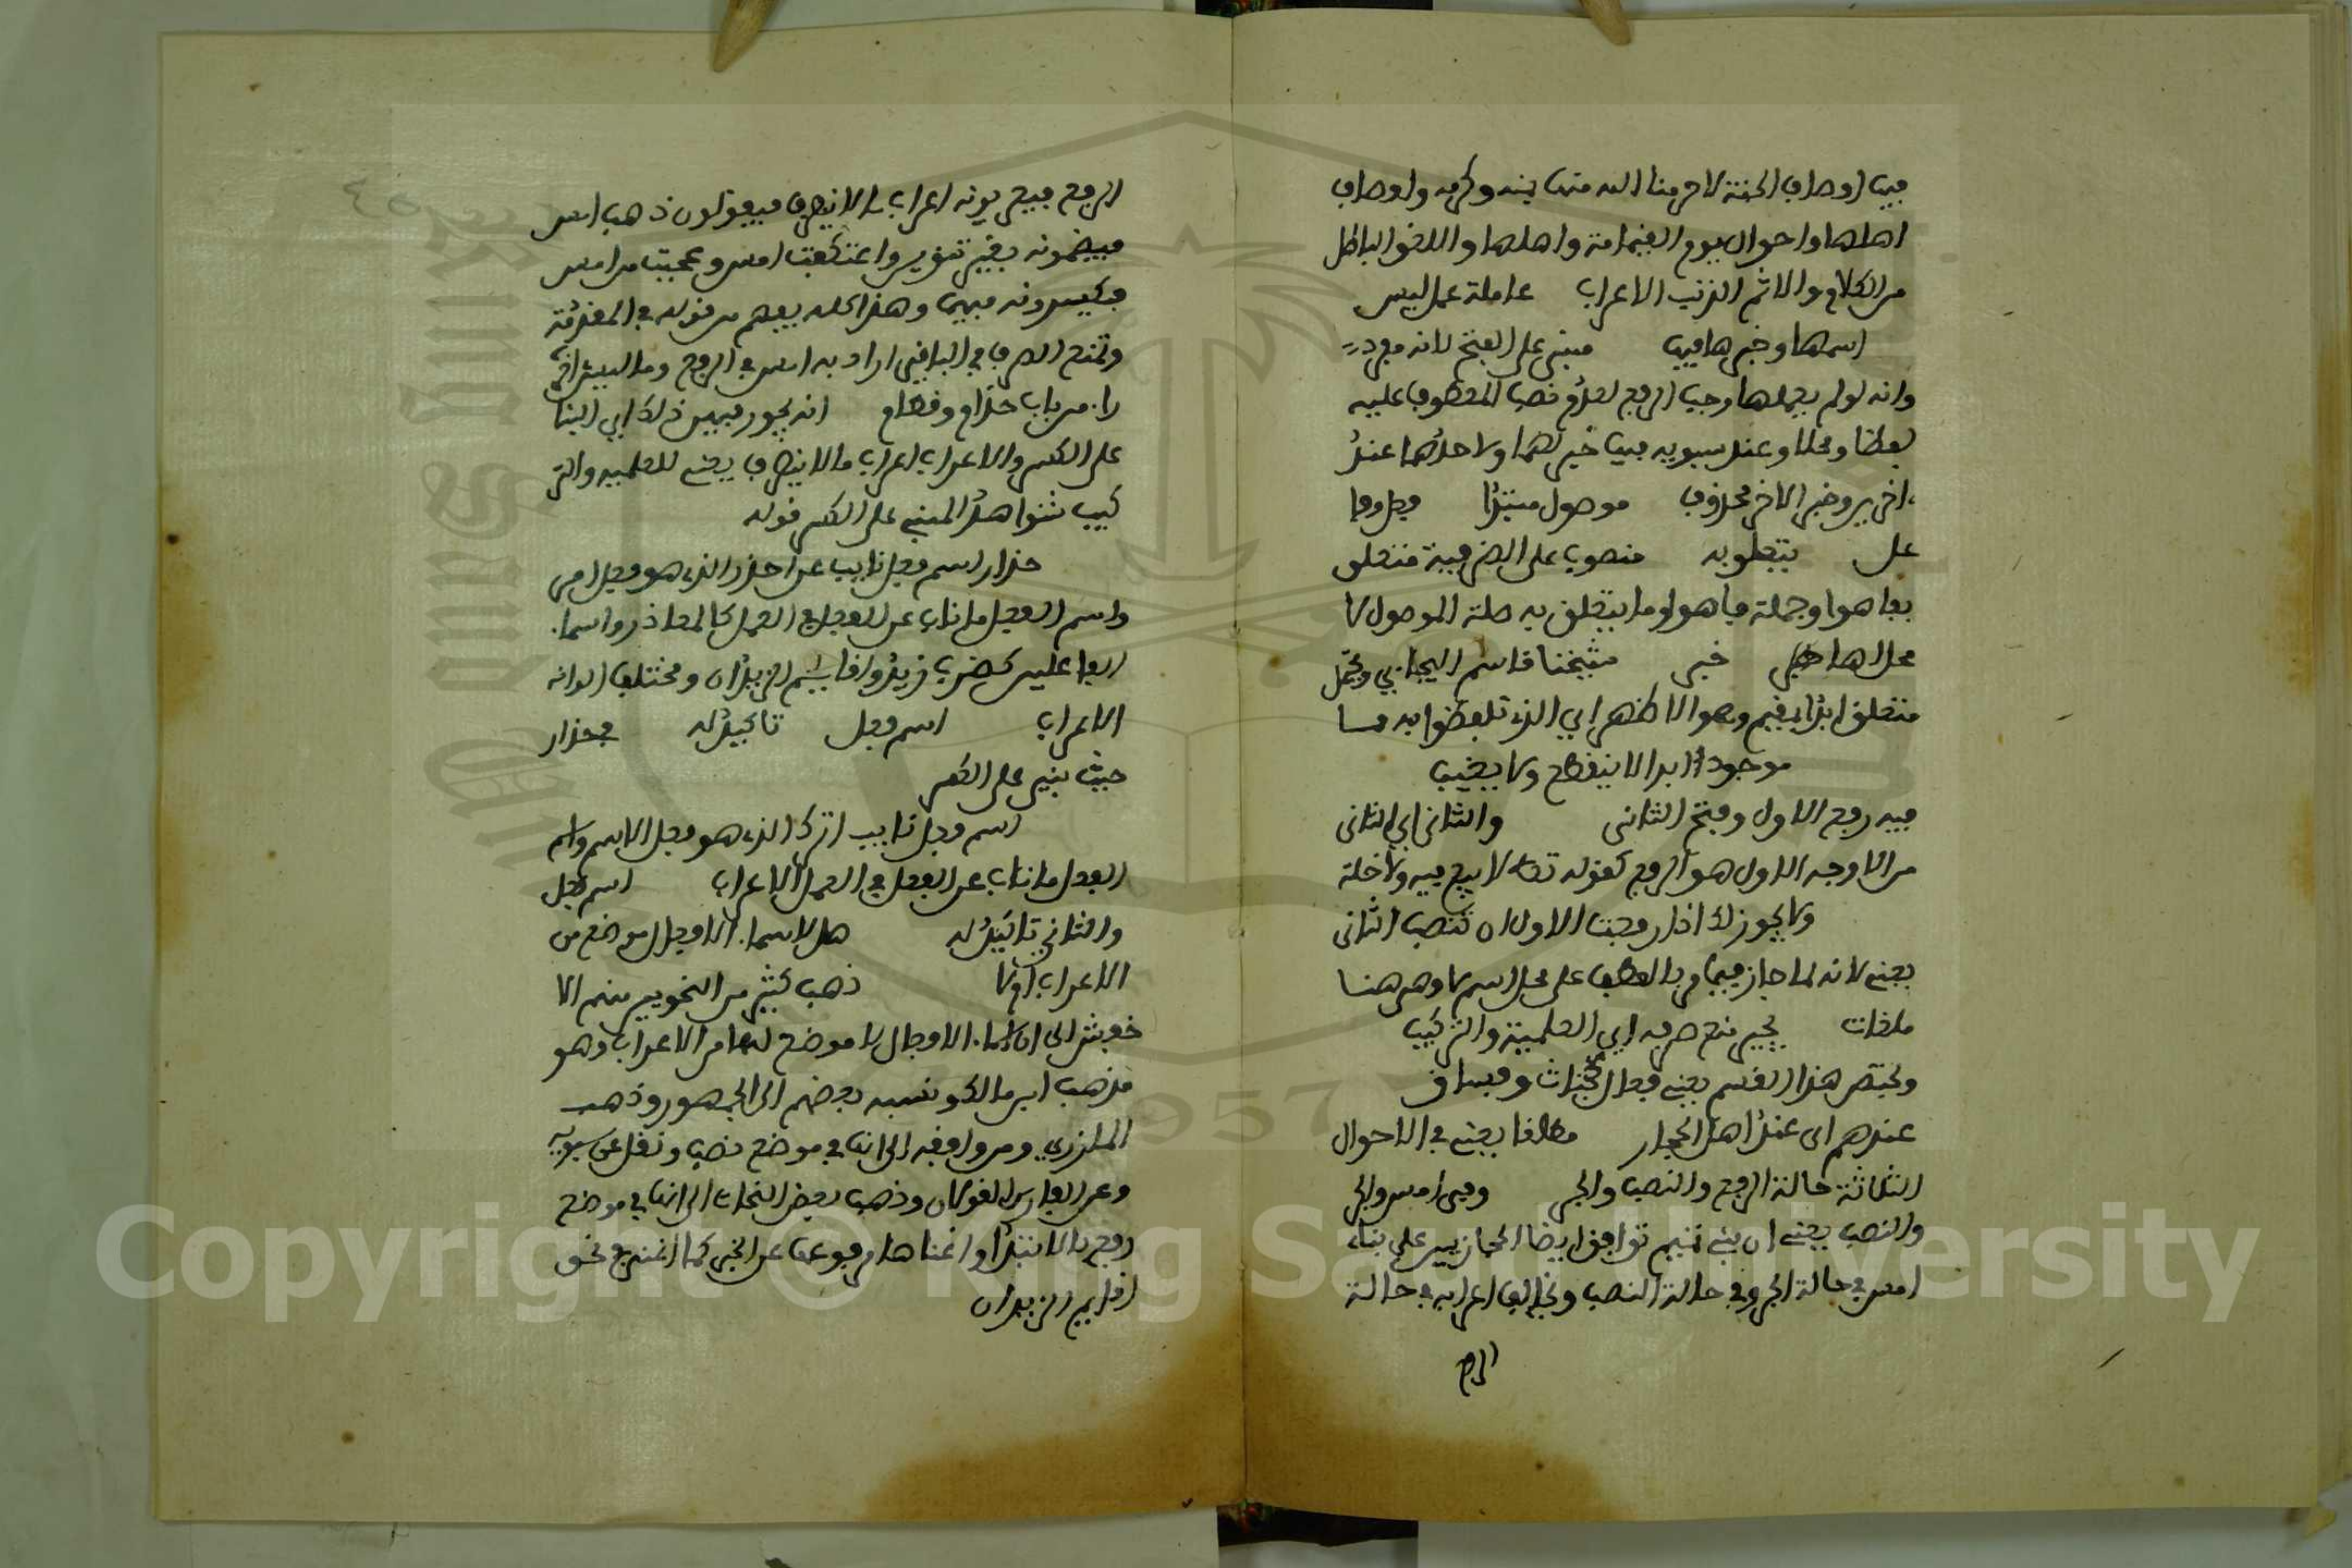 فيها اوصاف الجنة لا حرمنا الله منها بمنه وكرمه واوصاف
اهلها واحوال يوم القيامة واهلها واللغو الباطل
من الكلام والاثم الذنب الاعراب عاملة عمل ليس
اسمها وخبرها فيها مبني على الفتح لانه مفرد
وانه لو لم يعملها وجب الرفع لعدم نصب المعطوف عليه
لفظا ومحلا وعند سيبويه فيها خبر لهما ولاحدهما عند
اخرين وخبر الاخر محذوف موصول مبتدا
متعلق به منصوب على الظرفية متعلق
بفاهوا وجملة فاهوا وما يتعلق به صلة الموصول لا
محل لها خبر شيخنا قاسم ويحتمل
متعلق ابدا بمقيم وهو الاظهر اي الذي تلفظوا به
موجود ابدا لا ينقطع ولا يغيب
فيه رفع الاول وفتح الثاني والثاني اي الثاني
من الاوجه الاول هو الرفع كقوله تعالى لا بيع فيه ولا خلة
ولا يجوز لك اذا رفعت الاول ان تنصب الثاني
يعني لانه انما جاز فيما مر بالعطف على محل اسم لا وهي هنا
ملغات منع صرفه اي العلمية والتركيب
ويختص هذا القسم يعني فعال بخباث وفساق
عندهم اي عند اهل الحجاز مطلقا يعني في الاحوال
الثلاثة حالة الرفع والنصب والجر وفي امس والجر
والنصب يعني ان بني تميم توافق ايضا الحجازيين على بناء
امس في حالة الجر وفي حالة النصب وتخالف اعرابه في حالة
الرفع
الرفع فيعربونه اعراب ما لا ينصرف فيقولون ذهب امس
فيضمونه بغير تنوين واعتكفت امس وعجبت من امس
فيكسرونه فيهما وهذا كله يفهم من قوله في المقدمة
وتمنع الصرف في الباقي اراد به امس في الرفع وما ليس اخره
را. من باب حذام وقطام انه يجوز فيهن ذلك اي البنا
على الكسر والاعراب اعراب ما لا ينصرف يعني للعلمية والتر
كيب شواهد المبني على الكسر قوله
حذار اسم فعل نايب عن احذر الذي هو فعل امر
واسم الفعل ما ناب عن الفعل في العمل كالمصادر واسما.
الفاعلين كضرب زيد واقايم الزيدان ومختلف الوانه
الاعراب اسم فعل تاكيد له في حذار
حيث بني على الكسر
اسم فعل نايب اترك الذي هو فعل الاسم واسم
الفعل ما ناب عن الفعل في العمل الاعراب اسم فعل
والثاني تاكيد له هل لاسما. الافعال موضع من
الاعراب او لا ذهب كثير من النحويين منهم الا
خفش الى ان اسما. الافعال لا موضع لها من الاعراب وهو
مذهب ابن مالك ونسبه بعضهم الى الجمهور وذهب
المازني ومن وافقه الى انها في موضع نصب ونقل عن سيبويه
وعن الفارسي القولان وذهب بعض النحات الى انها في موضع
رفع بالابتدا واغناها مرفوعها عن الخبر كما اغنى في نحو
اقايم الزيدان